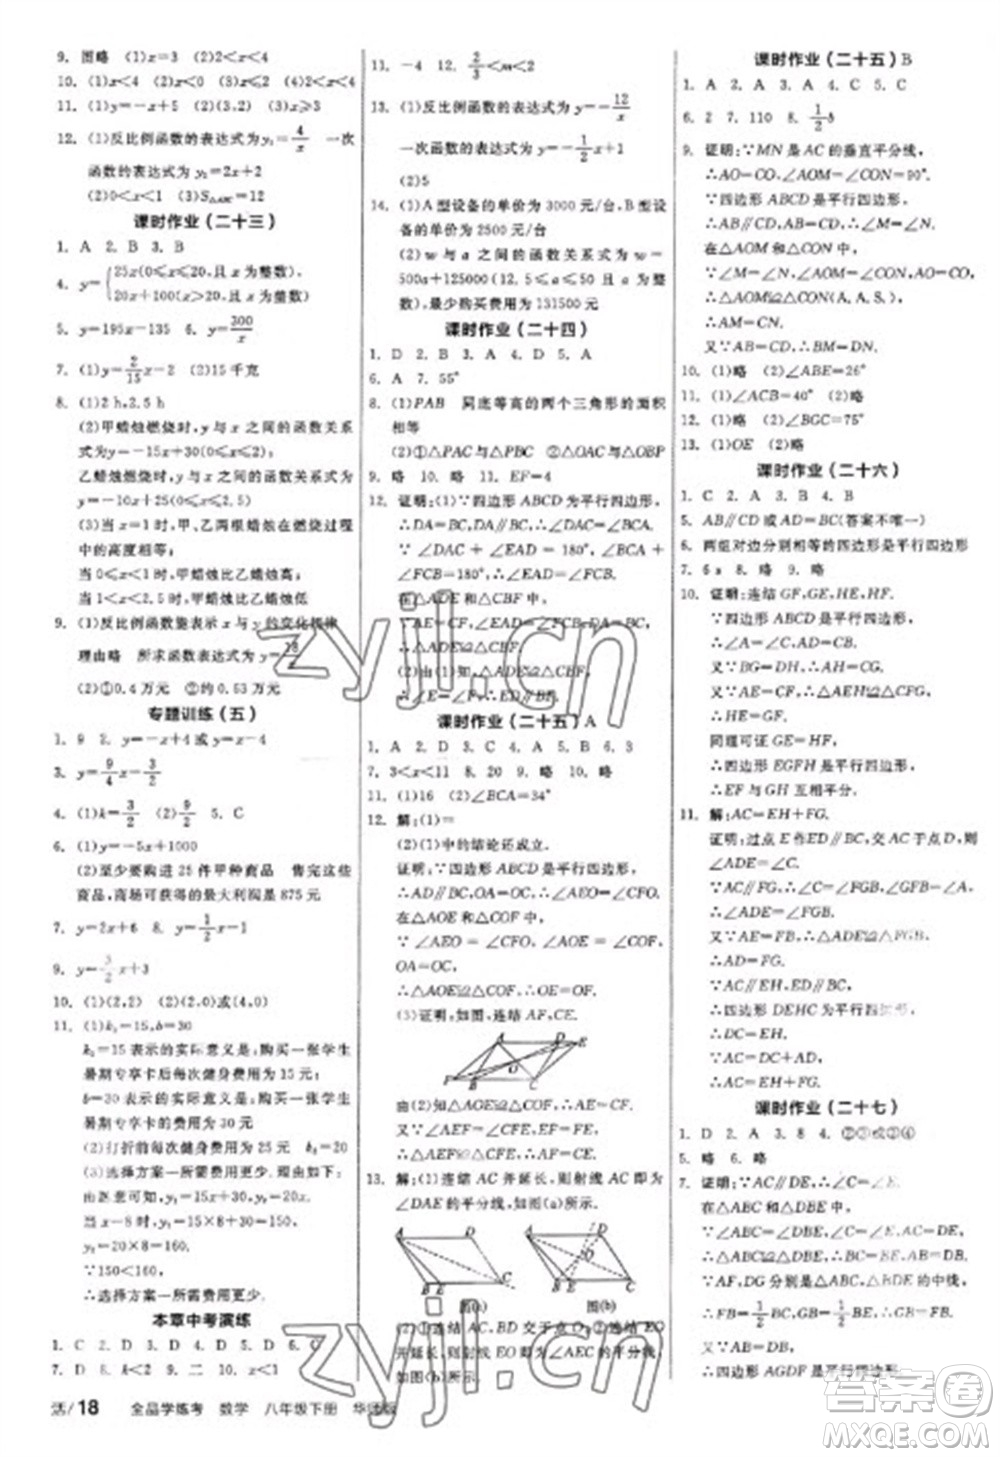 9. 图略 (1)x=3 (2)2<x<4
10. (1)x<4 (2)x<0 (3)x≤2 (4)2<x<4
11. (1)y=-x+5 (2)(3,2) (3)x≥3
12. (1)反比例函数的表达式为y₁=4/x 一次
函数的表达式为y₂=2x+2
(2)0<x<1 (3)S△ABC=12
课时作业(二十三)
1. A 2. B 3. B
4. y={25x(0≤x≤20,且x为整数)
20x+100(x>20,且x为整数)
5. y=195x-135 6. y=300/x
7. (1)y=2/15x-2 (2)15千克
8. (1)2 h,2.5 h
(2)甲蜡烛燃烧时,y与x之间的函数关系式
为y=-15x+30(0≤x≤2);
乙蜡烛燃烧时,y与x之间的函数关系式
为y=-10x+25(0≤x≤2.5)
(3)当x=1时,甲、乙两根蜡烛在燃烧过程
中的高度相等;
当0≤x<1时,甲蜡烛比乙蜡烛高;
当1<x<2.5时,甲蜡烛比乙蜡烛低
9. (1)反比例函数能表示x与y的变化规律
理由略 所求函数表达式为y=18/x
(2)①0.4万元 ②约0.53万元
专题训练(五)
1. 9 2. y=-x+4或y=x-4
3. y=9/4x-3/2
4. (1)k=3/2 (2)9/2 5. C
6. (1)y=-5x+1000
(2)至少要购进25件甲种商品 售完这些
商品,商场可获得的最大利润是875元
7. y=2x+6 8. y=1/2x-1
9. y=3/2x+3
10. (1)(2,2) (2)(2,0)或(4,0)
11. (1)k₁=15,b=30
k₁=15表示的实际意义是:购买一张学生
暑期专享卡后每次健身费用为15元;
b=30表示的实际意义是:购买一张学生
暑期专享卡的费用为30元
(2)打折前每次健身费用为25元 k₂=20
(3)选择方案一所需费用更少.理由如下:
由题意可知,y₁=15x+30,y₂=20x.
当x=8时,y₁=15×8+30=150,
y₂=20×8=160.
∵150<160,
∴选择方案一所需费用更少
本章中考演练
1. C 2. D 3. D 4. D 5. C 6. C
7. D 8. k<2 9. 二 10. x<1
11. -4 12. 2/3<m<2
13. (1)反比例函数的表达式为y=-12/x
一次函数的表达式为y=-1/2x+2
(2)5
14. (1)A型设备的单价为3000元/台,B型设
备的单价为2500元/台
(2)w与a之间的函数关系式为w=
500a+125000(12.5≤a≤50且a为整
数),最少购买费用为131500元
课时作业(二十四)
1. D 2. B 3. A 4. D 5. A
6. A 7. 55°
8. (1)PAB 同底等高的两个三角形的面积
相等
(2)①△PAC与△PBC ②△OAC与△OBP
9. 略 10. 略 11. EF=4
12. 证明:(1)∵四边形ABCD为平行四边形,
∴DA=BC,DA∥BC,
∵∠DAC+∠EAD=180°,∠BCA+
∠FCB=180°,∴∠EAD=∠FCB.
在△ADE和△CBF中,
(2)由(1)知,△ADE≌△CBF,
∴∠E=∠F,∴DE∥BF.
课时作业(二十五)A
1. A 2. D 3. C 4. A 5. B 6. 3
7. 3<x<11 8. 20 9. 略 10. 略
11. (1)16 (2)∠BCA=34°
12. 解:(1)=
(2)(1)中的结论还成立.
证明:∵四边形ABCD是平行四边形,
∴AD∥BC,OA=OC,∴∠AEO=∠CFO.
在△AOE和△COF中,
∵∠AEO=∠CFO,∠AOE=∠COF,
OA=OC,
∴△AOE≌△COF,∴OE=OF.
(3)证明,如图,连结AF,CE.
A D E
F B C
由(2)知△AOE≌△COF,∴AE=CF.
13. 解:(1)连结AC并延长,射线AC即为
∠DAE的平分线,如图(a)所示.
A D B E C
图(a)
A D B E C
图(b)
(2)①连结AC,BD交于点O,②连结EO
并延长,则射线EO即为∠AEC的平分线,如
图(b)所示.
课时作业(二十五)B
1. A 2. A 3. A 4. C 5. C
6. 2 7. 110 8. 1/2b
9. 证明:∵MN是AC的垂直平分线,
∴AO=CO,∠AOM=∠CON=90°.
∵四边形ABCD是平行四边形,
∴AB∥CD,∴∠M=∠N.
在△AOM和△CON中,
∵∠M=∠N,∠AOM=∠CON,AO=CO,
∴△AOM≌△CON(A.A.S.),
∴AM=CN.
又∵AB=CD,∴BM=DN.
10. (1)略 (2)∠ABE=26°
11. (1)∠ACB=40° (2)略
12. (1)略 (2)∠BGC=75°
13. (1)OE (2)略
课时作业(二十六)
1. C 2. A 3. B 4. B
5. AB∥CD或AD=BC(答案不唯一)
6. 两组对边分别相等的四边形是平行四边形
7. 6s 8. 略 9. 略
10. 证明:连结GF,GE,HE,HF.
∵四边形ABCD是平行四边形,
∴∠A=∠C,AD=BC.
又∵BG=DH,∴AH=CG.
又∵AE=CF,∴△AEH≌△CFG,
∴HE=GF.
同理可证GE=HF,
∴四边形EGFH是平行四边形,
∴EF与GH互相平分.
11. 解:AC=EH+FG.
证明:过点E作ED∥BC,交AC于点D,则
∠ADE=∠C.
∵AC∥FG,∴∠C=∠FGB,
∴∠ADE=∠FGB.
又∵∠A=∠BFG,AE=FB,
∴△ADE≌△FGB,
∴AD=FG.
∵AC∥EH,ED∥BC,
∴四边形DEHC是平行四边形,
∴DC=EH.
∵AC=DC+AD,
∴AC=EH+FG.
课时作业(二十七)
1. D 2. A 3. 8 4. ②③或③④
5. 略 6. 略
7. 证明:∵AC∥DE,∴∠CAB=∠E.
在△ABC和△DBE中,
∴△ABC≌△DBE,∴AB=BE.
∵AF,DG分别是△ABC,△DBE的中线,
∴四边形AGDF是平行四边形.
活/18 全品学练考 数学 八年级下册 华师版
zyjl.cn
zyjl.cn
答案圈
MXQE.COM